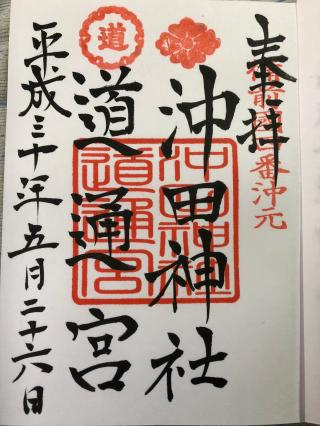 奉拝
備前國一番沖元
沖田神社
道通宮
道
沖田神社
道通宮
平成三十年五月二十六日